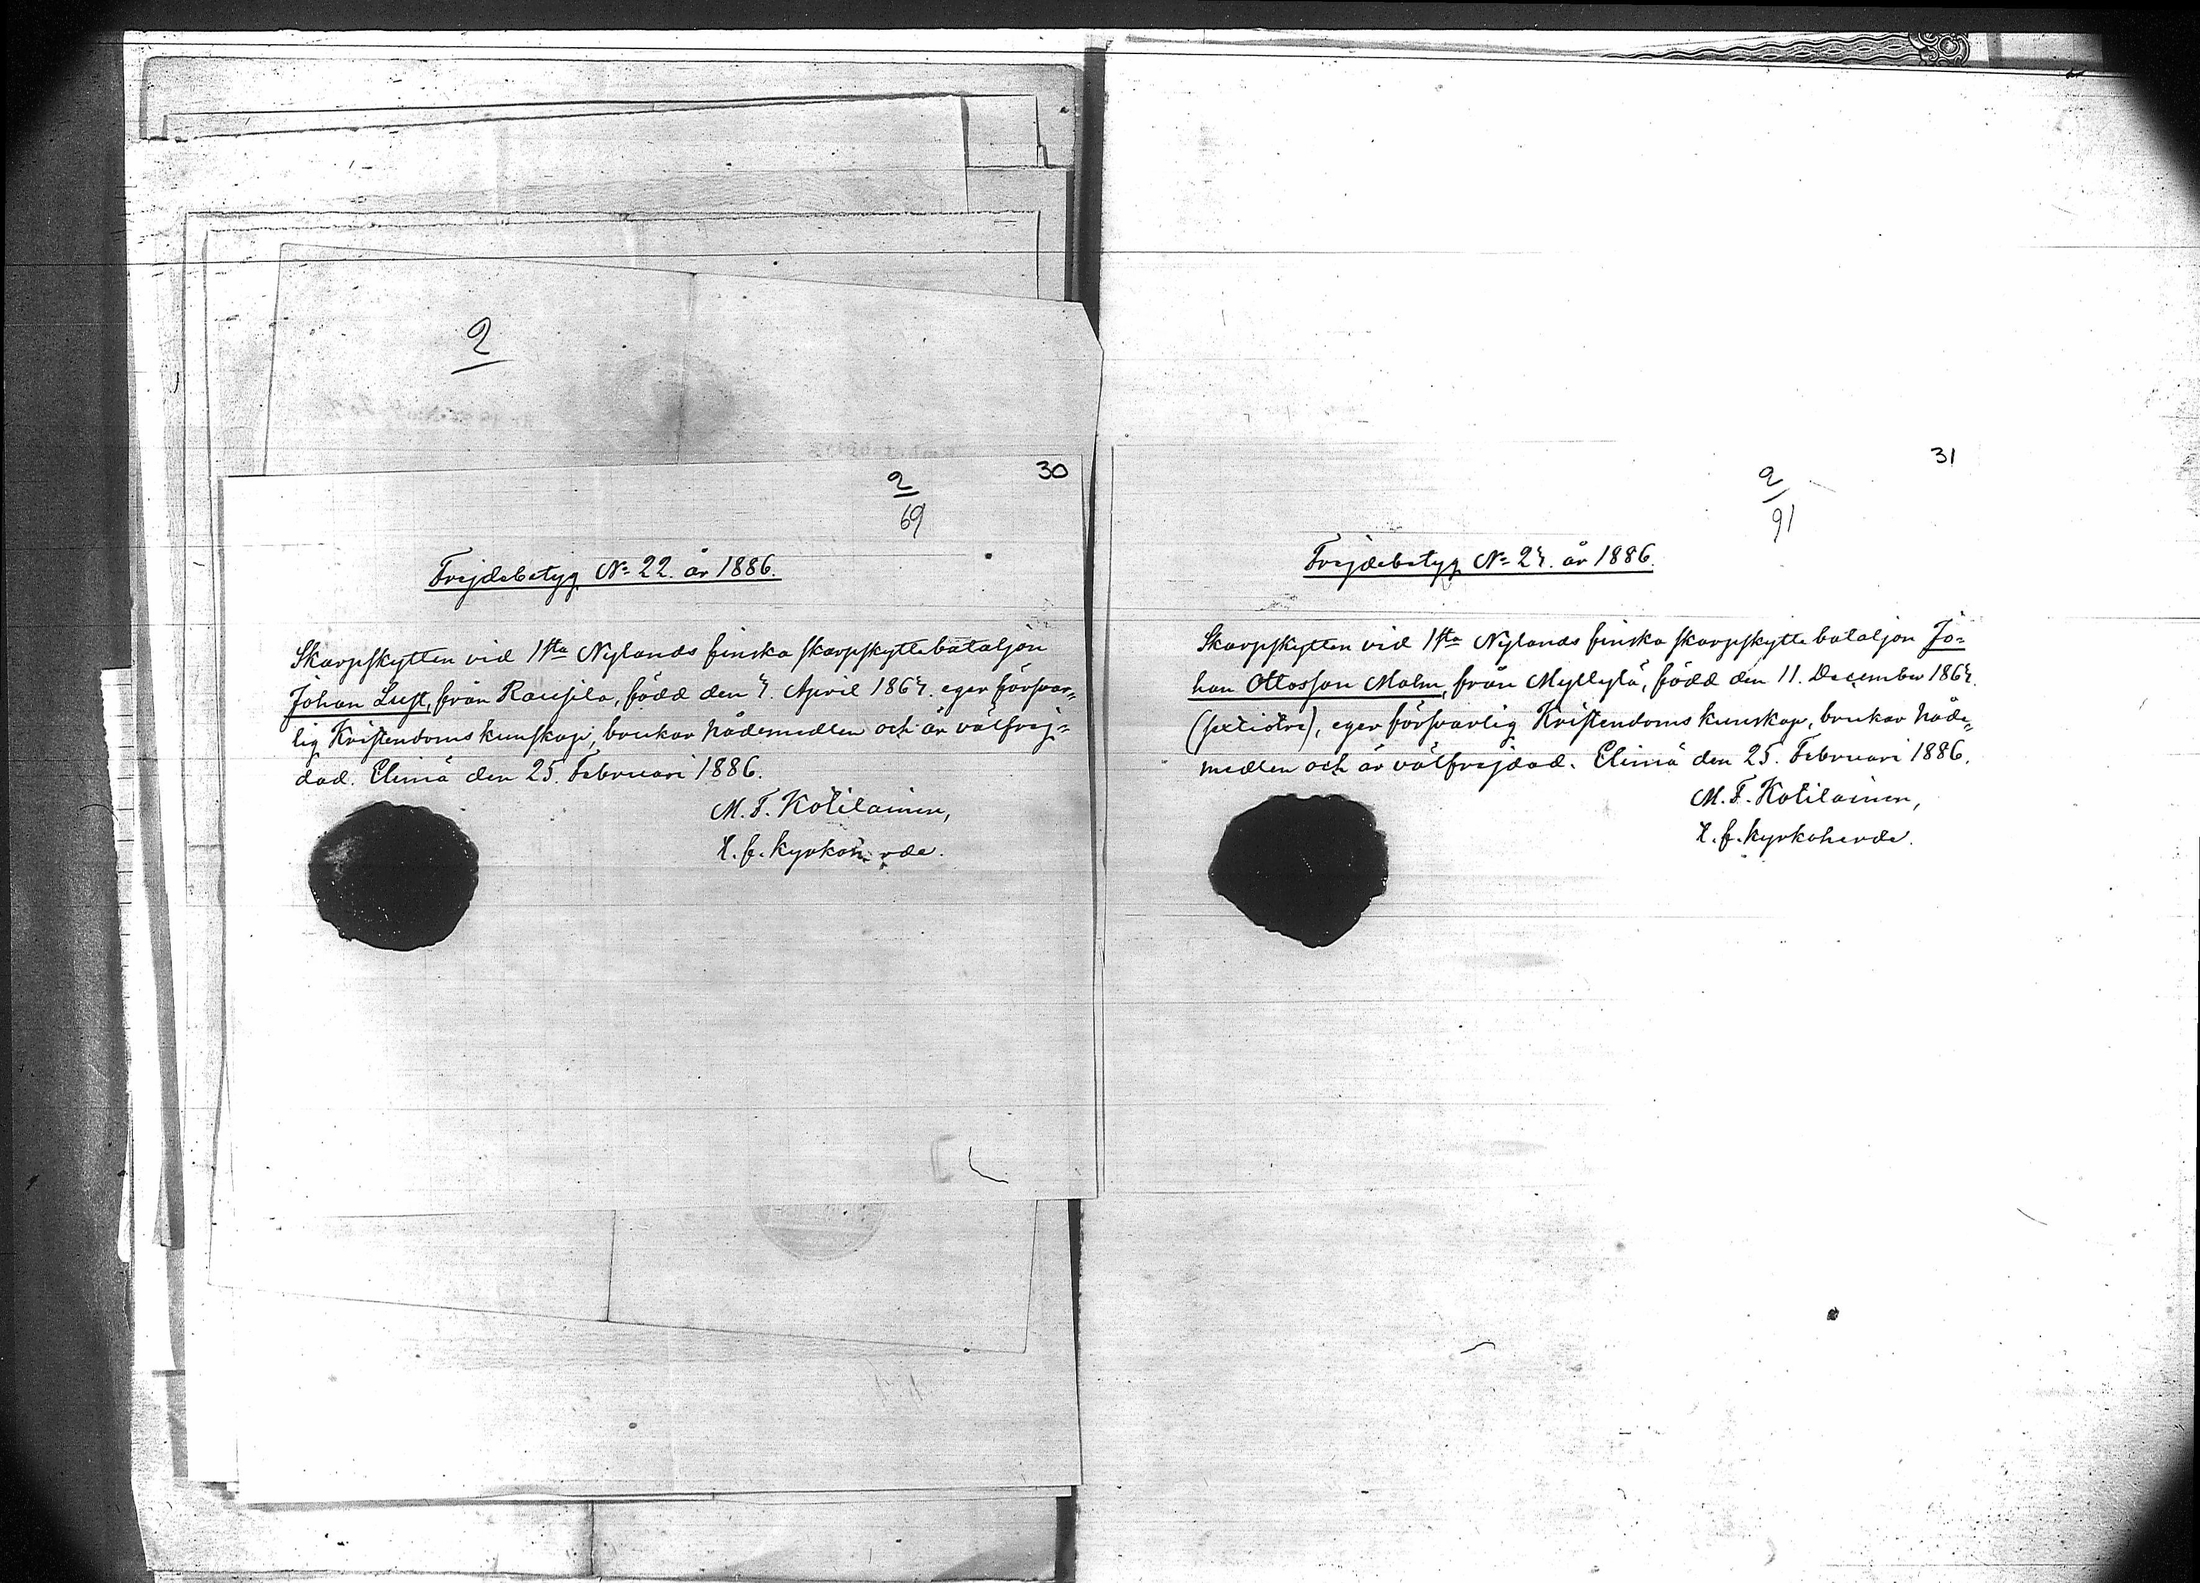 2
30
2/69
Frejdebetyg No 22. år 1886.
Skarpskytten vid 1sta Nylands finska skarpskyttebataljon
Johan Lust, från Raussila, född den 4. April 1864. eger försvar=
lig Kristendomskunskap, brukar Nådemedlen och är välfrej=
dad. Elimä den 25. Februari 1886.
M. F. Kotilainen,
t. f. kyrkoherde.
31
2/91
Frejdebetyg No 24. år 1886.
Skarpskytten vid 1sta Nylands finska skarpskyttebataljon Jo=
han Ottosson Malm, från Myllylä, född den 11. December 1864.
(sextiotre), eger försvarlig Kristendomskunskap, brukar Nåde=
medlen och är välfrejdad. Elimä den 25. Februari 1886.
M. F. Kotilainen,
t. f. kyrkoherde.